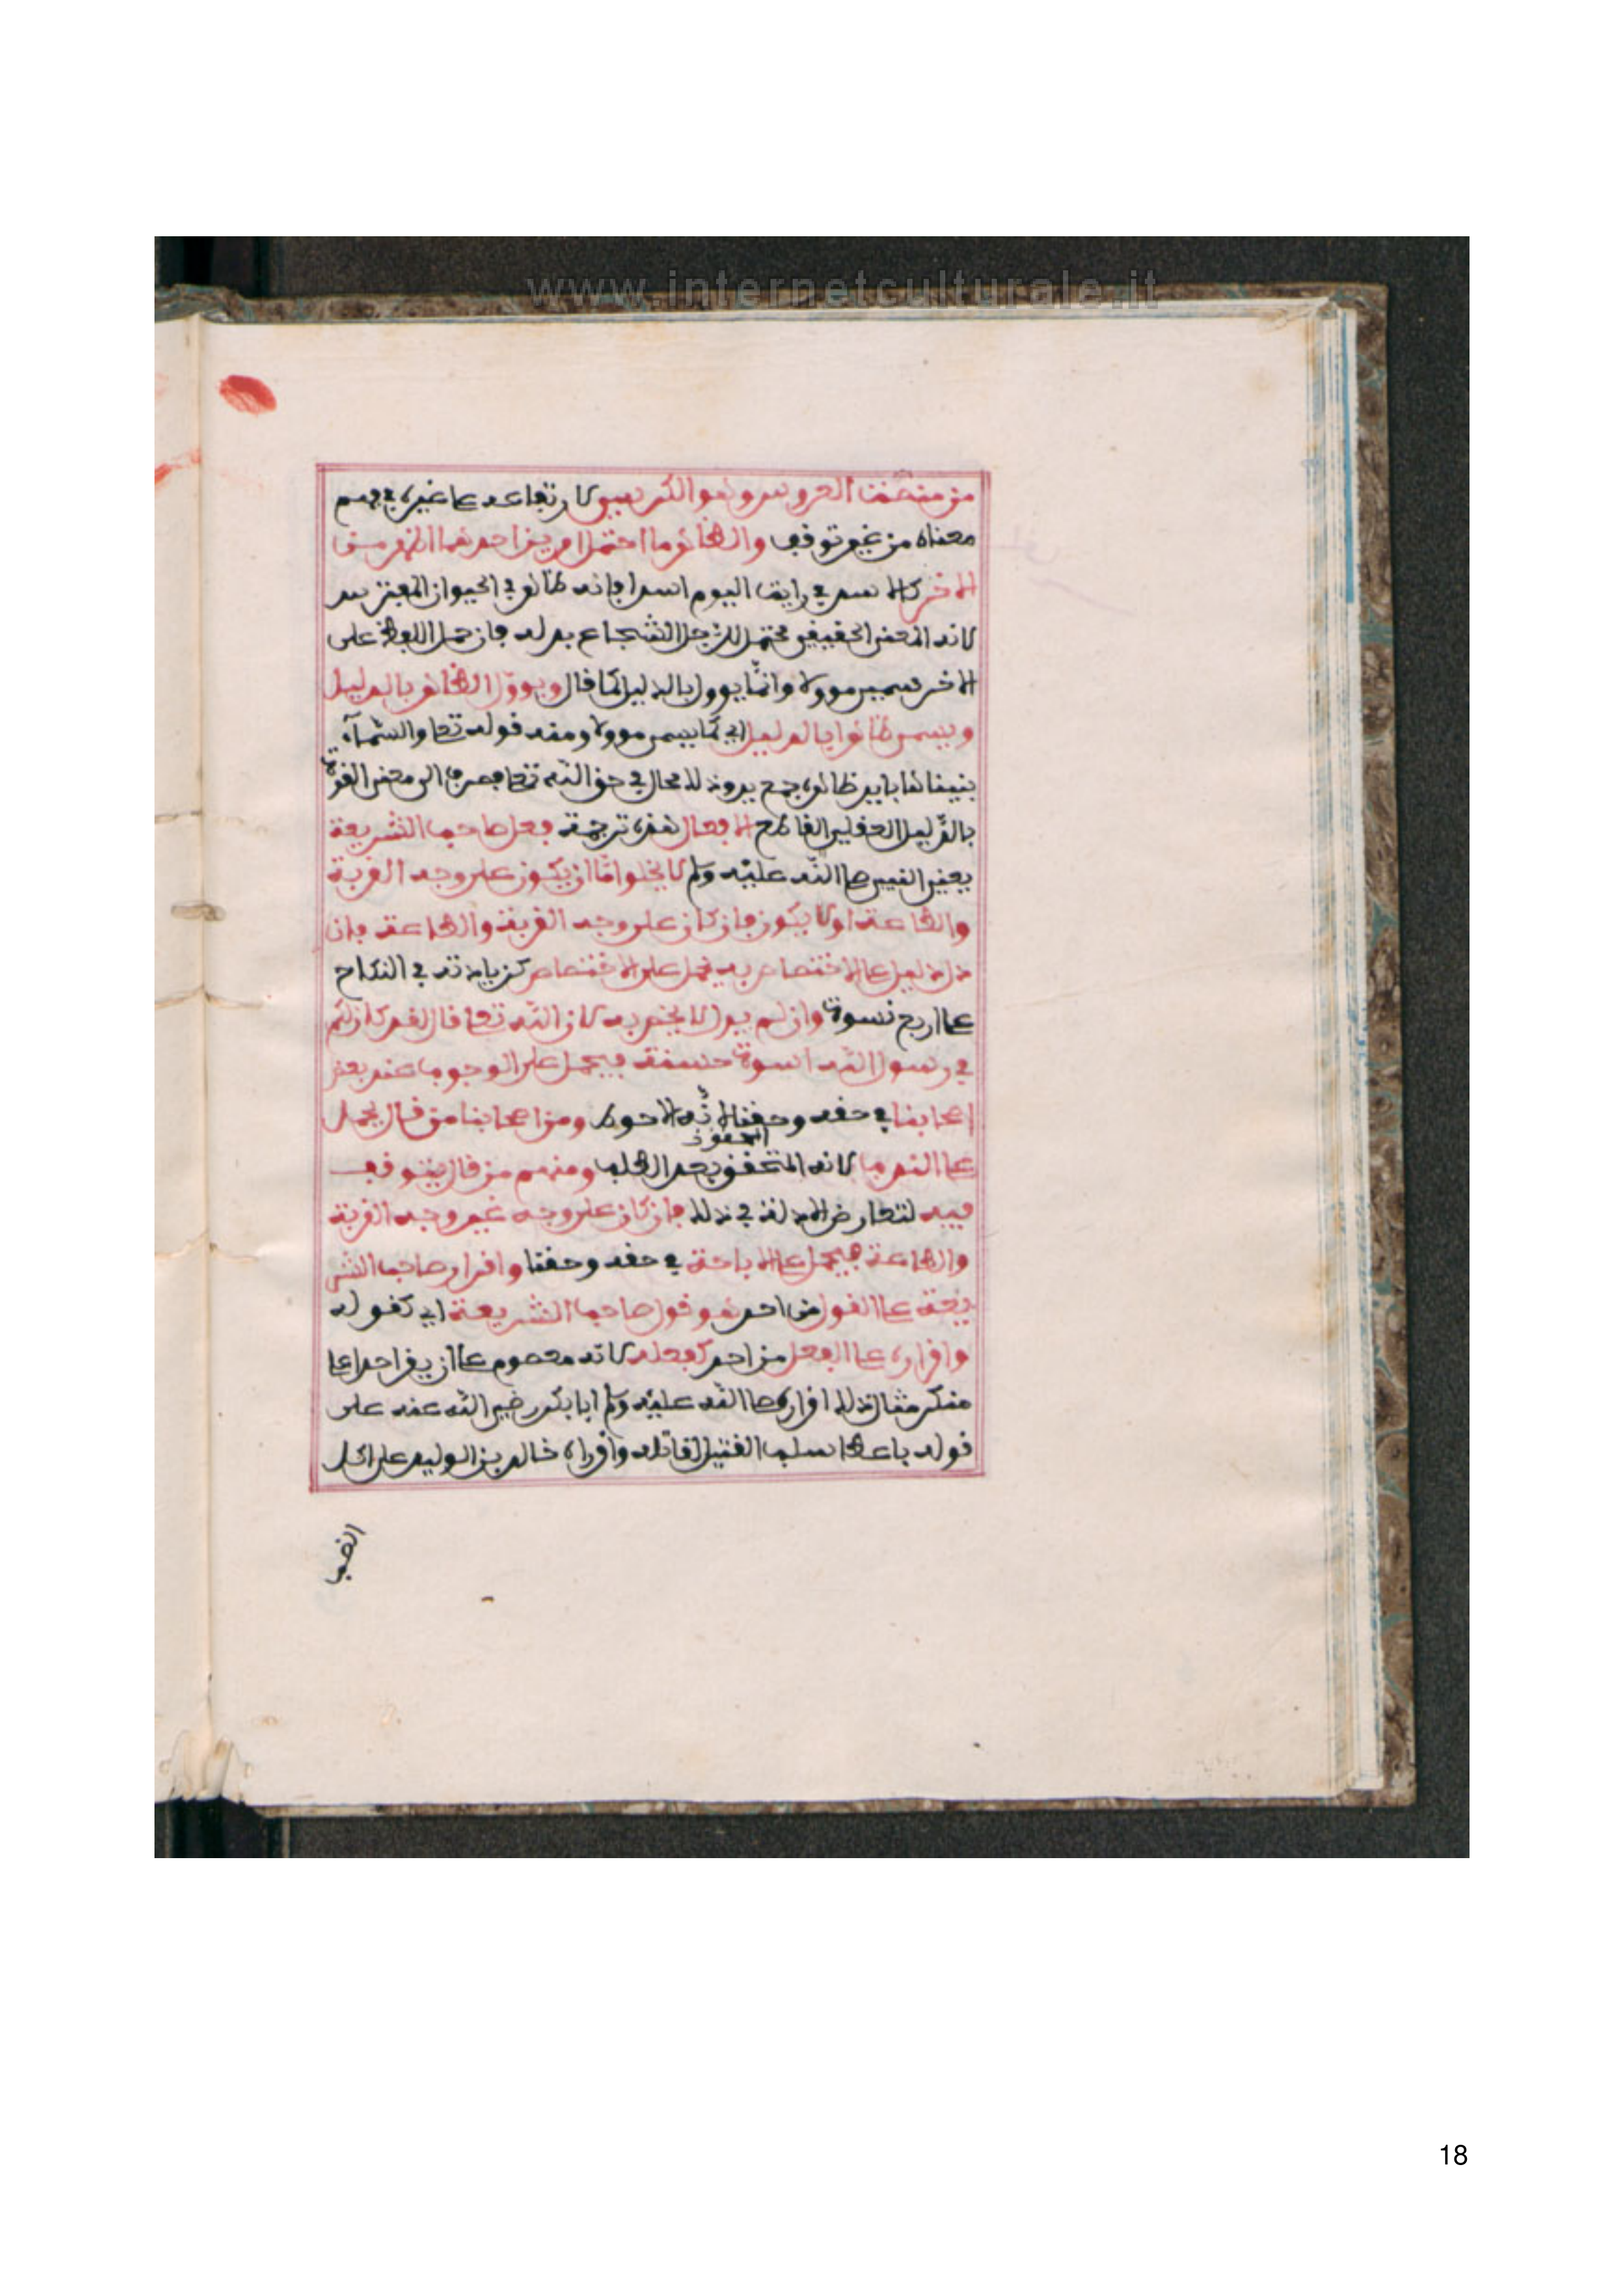 www.internetculturale.it
من منصة العروس وهو الكرسي لارتفاعه على غيره في فهم
معناه من غير توقف والظاهر ما احتمل امرين احدهما اظهر من
الاخر كالاسد في رايت اليوم اسدا فانه ظاهر في الحيوان المفترس
لانه المعنى الحقيقي محتمل للرجل الشجاع بدله فان حمل اللفظ على
الاخر سمي موولا وانما يوول بالدليل كما قال ويوول الظاهر بالدليل
ويسمى ظاهرا بالدليل اي كما يسمى موولا ومنه قوله تعلى والسماء
بنيناها باييد ظاهره جمع يد وذلك محال في حق الله تعلى فصرف الى معنى القوة
بالدليل العقلي القاطع الافعال هذه ترجمة فعل صاحب الشريعة
يعني النبي صلى الله عليه وسلم لا يخلوا اما ان يكون على وجه القربة
والطاعة او لا يكون فان كان على وجه القربة والطاعة فان
دل دليل على الاختصاص به يحمل على الاختصاص كزيادته في النكاح
على اربع نسوة وان لم يدل لا يختص به لان الله تعلى قال لقد كان لكم
في رسول الله اسوة حسنة فيحمل على الوجوب عند بعض
اصحابنا في حقه وحقنا لانه الاحوط ومن اصحابنا من قال يحمل
على الندب لانه المتحقق بعد الطلب ومنهم من قال يتوقف
فيه لتعارض الادلة في ذلك فان كان على وجه غير وجه القربة
والطاعة فيحمل على الاباحة في حقه وحقنا واقرار صاحب الشر
يعة على القول من احد هو قول صاحب الشريعة اي كقوله
واقراره على الفعل من احد كفعله لانه معصوم على ان يقر احدا على
منكر مثال ذلك اقراره صلى الله عليه وسلم ابا بكر رضي الله عنه على
قوله باعطا سلب القتيل لقاتله واقراره خالد بن الوليد على اكل
الضب
18